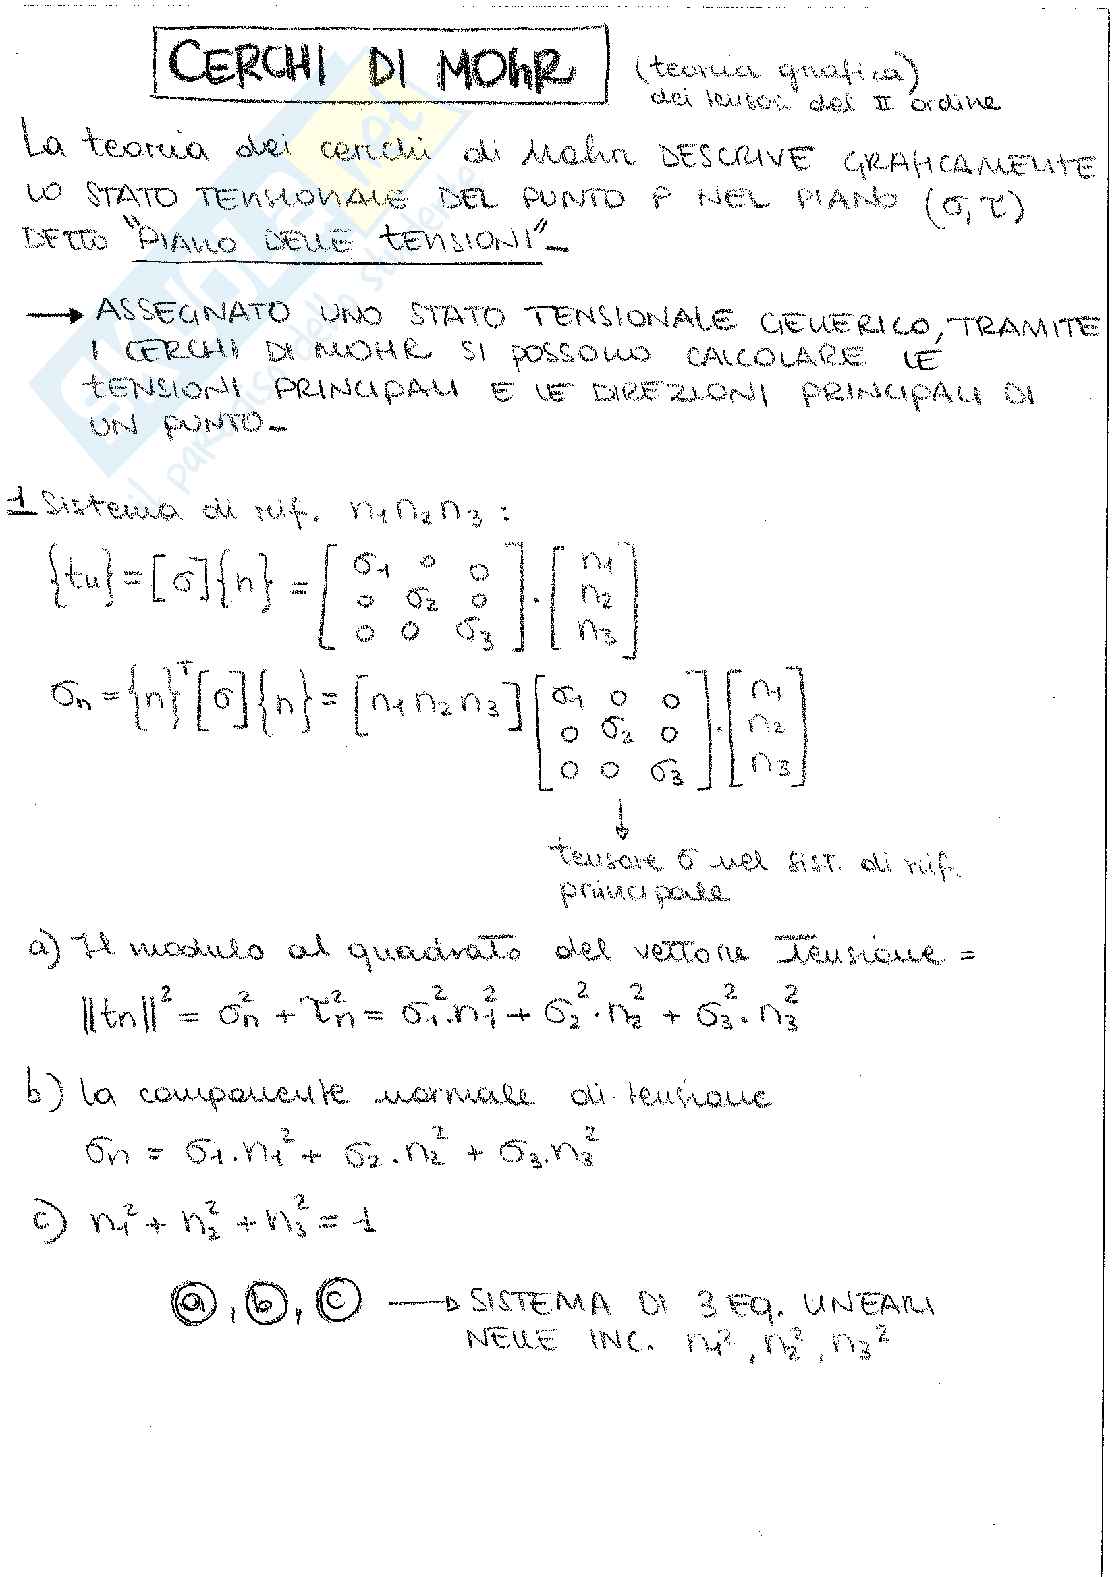 CERCHI DI MOhR (teoria grafica)
dei tensori del II ordine
La teoria dei cerchi di Mohr DESCRIVE GRAFICAMENTE
LO STATO TENSIONALE DEL PUNTO P NEL PIANO (σ, τ)
DETTO "PIANO DELLE tENSIONI"_
→ ASSEGNATO UNO STATO TENSIONALE GENERICO, TRAMITE
I CERCHI DI MOHR SI POSSONO CALCOLARE LE
tENSIONI PRINCIPALI E LE DIREZIONI PRINCIPALI DI
UN PUNTO_
1 Sistema di rif. n₁n₂n₃ :
{tn} = [σ]{n} = [σ₁ 0 0; 0 σ₂ 0; 0 0 σ₃] · [n₁; n₂; n₃]
σn = {n}ᵀ[σ]{n} = [n₁ n₂ n₃] [σ₁ 0 0; 0 σ₂ 0; 0 0 σ₃] · [n₁; n₂; n₃]
↓
tensore σ nel sist. di rif.
principale
a) Il modulo al quadrato del vettore tensione =
||tn||² = σn² + τn² = σ₁²·n₁² + σ₂²·n₂² + σ₃²·n₃²
b) la componente normale di tensione
σn = σ₁·n₁² + σ₂·n₂² + σ₃·n₃²
c) n₁² + n₂² + n₃² = 1
ⓐ, ⓑ, ⓒ → SISTEMA DI 3 EQ. LINEARI
NELLE INC. n₁², n₂², n₃²